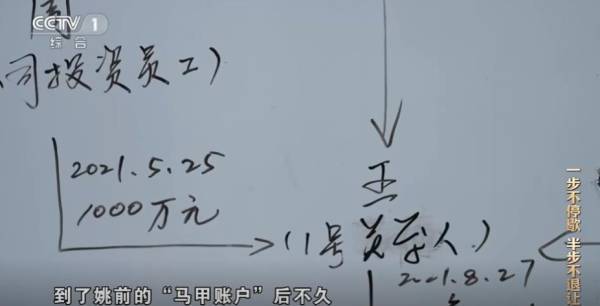 CCTV 1
综合
周
司投资员工)
2021.5.25
1000万元
王
(1号
2021.8.27
一步不停歇 半步不退让
到了姚前的“马甲账户”后不久